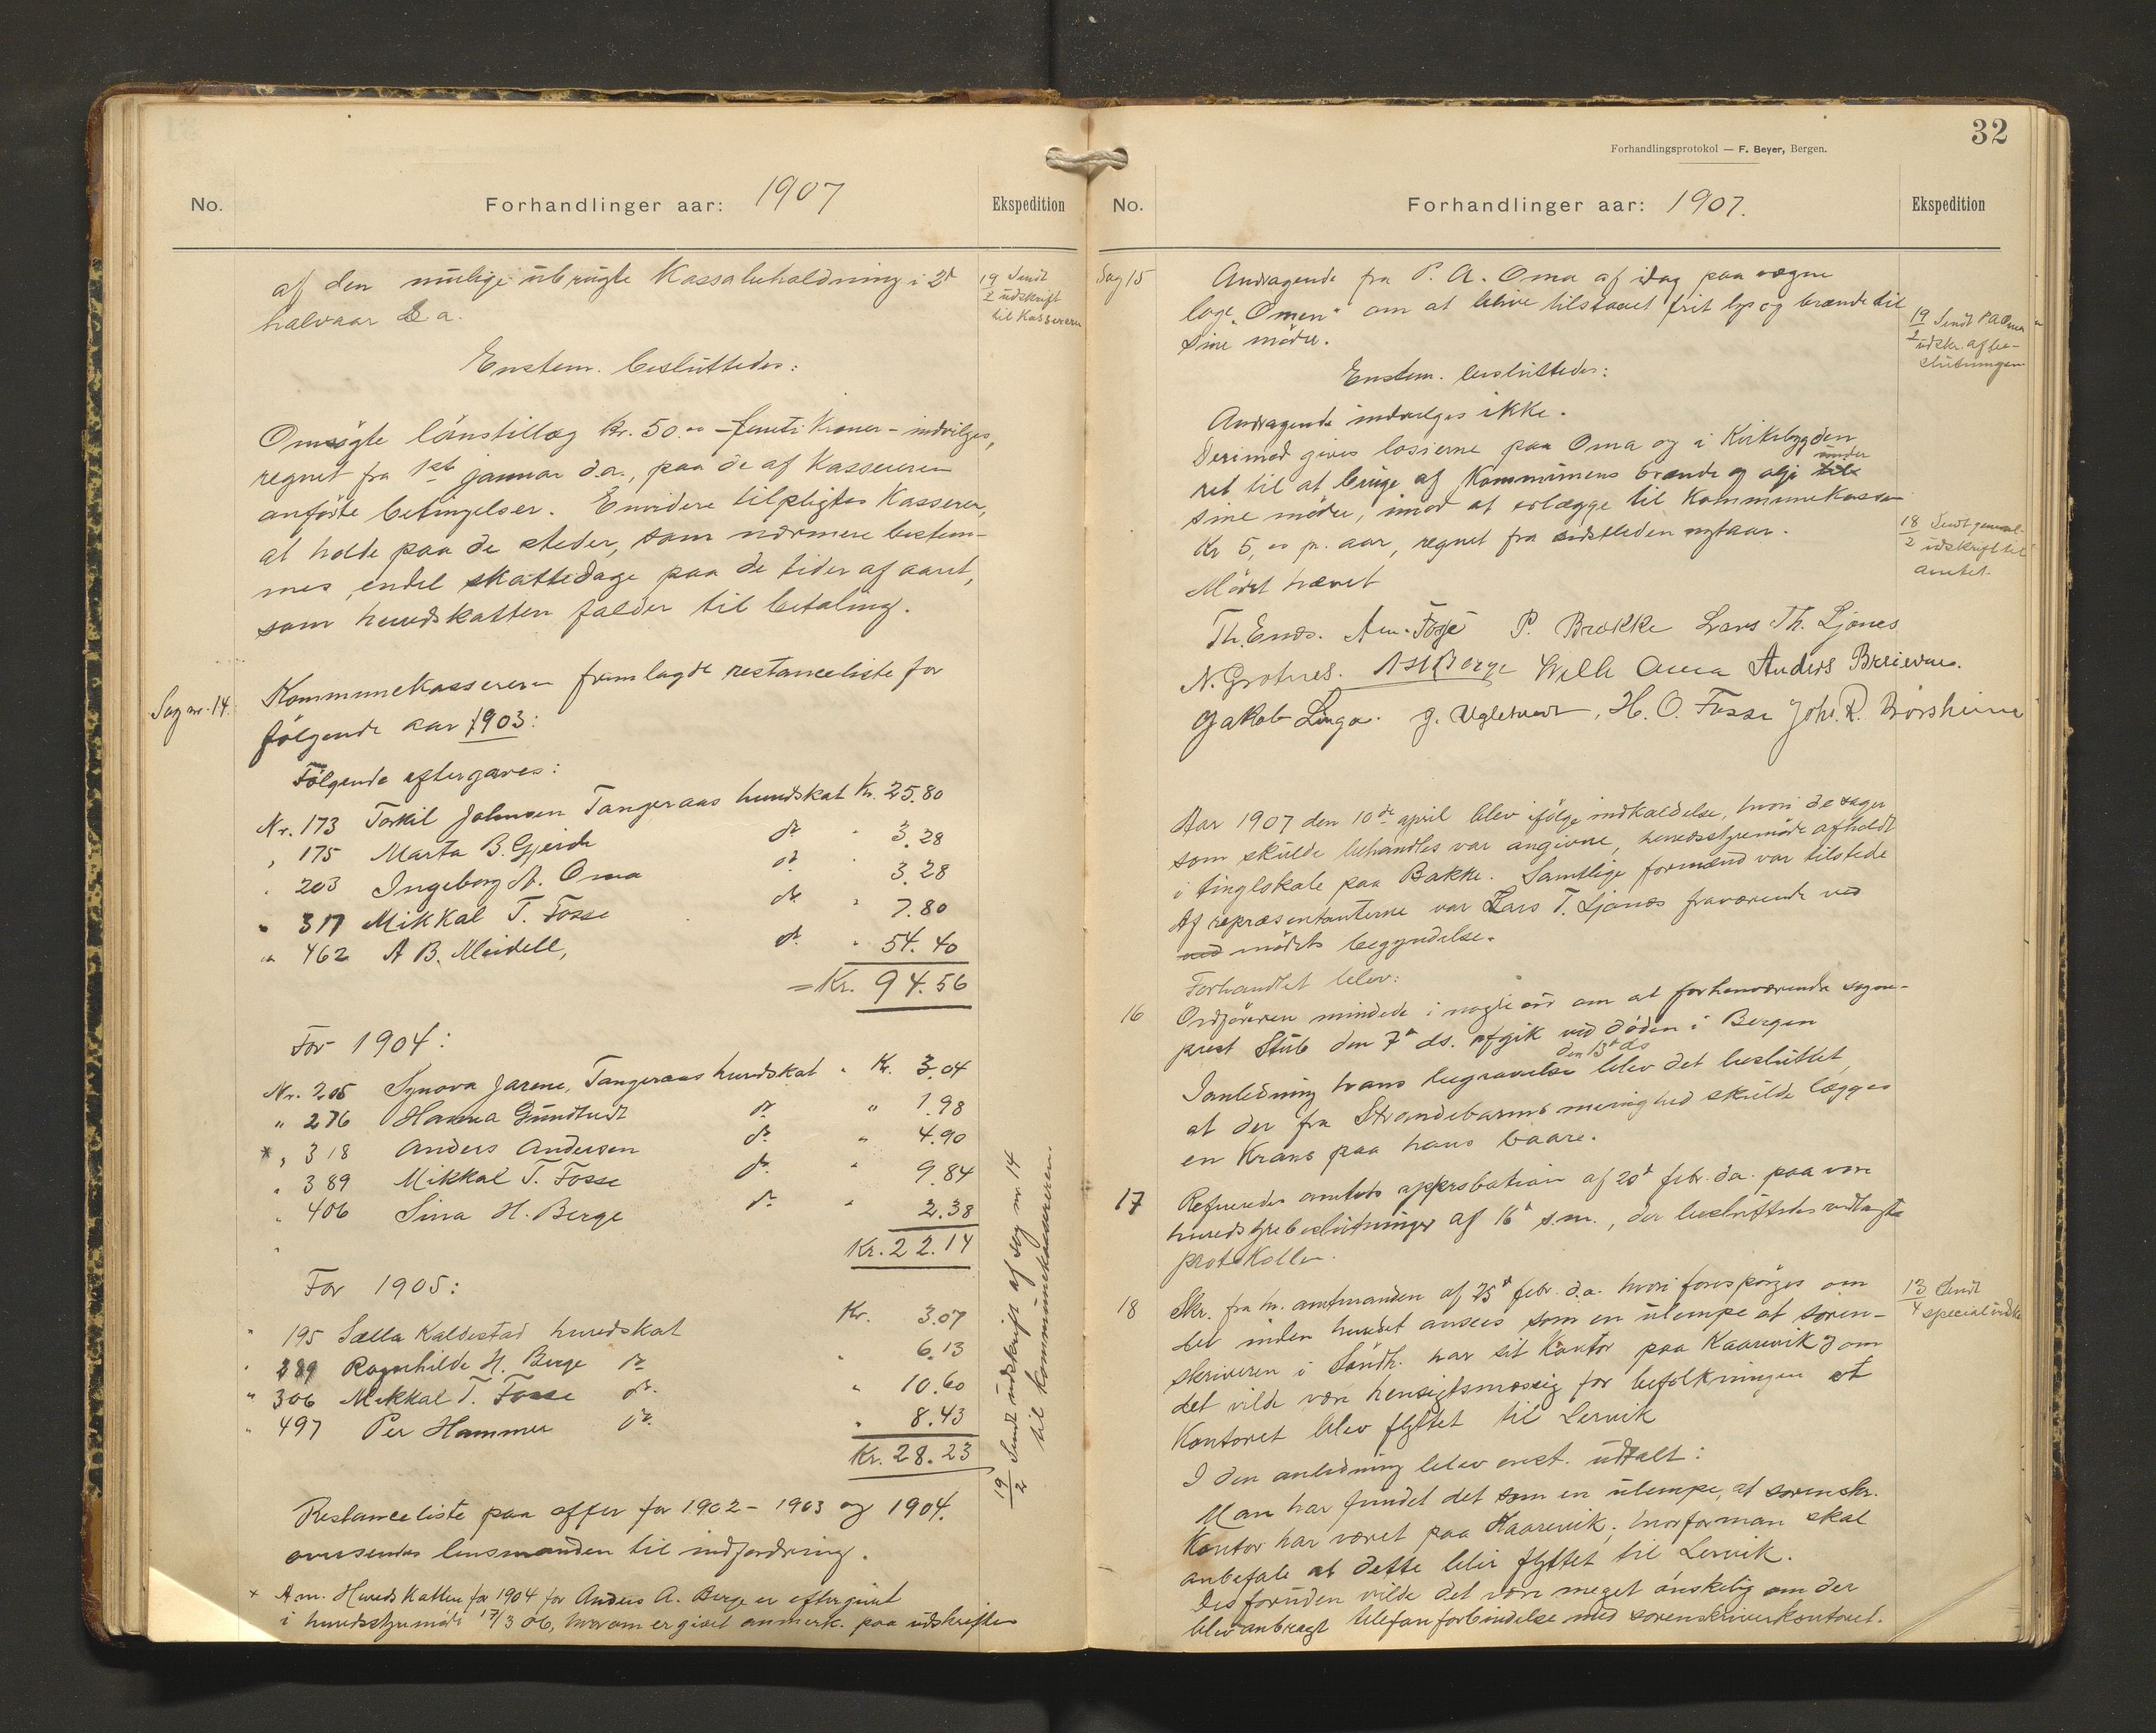 No.
Forhandlinger aar: 1907
Ekspedition
af den mulige ubrugte Kassabeholdning i 2d
halvaar d. a.
19/2 Sendt
udskrift
til Kassereren
Enstem. besluttedes:
Omsögte lönstillæg Kr. 50.00 - femti Kroner - indvilges,
regnet fra 1st januar d.a., paa de af Kassereren
anförte betingelser. Envidere tilpligtes Kasserer,
at holde paa de steder, som nærmere bestem-
mes, endel skattedage paa de tider af aaret,
som herredskatten falder til betaling.
Sag nr. 14.
Kommunekassereren fremlagde restanceliste for
følgende aar 1903:
Følgende eftergaves:
Nr. 173 Torkil Johnsen Tangeraas herredskat Kr. 25.80
" 175 Marta B. Gjerde do " 3.28
" 203 Ingeborg A. Oma do " 3.28
" 317 Mikkal T. Fosse do " 7.80
" 462 A B. Meidell, do " 54.40
= Kr. 94.56
For 1904:
Nr. 205 Synova Jarene, Tangeraas herredskat " Kr. 3.04
" 276 Hanna Gundtvedt do " 1.98
* " 318 Anders Andersen do " 4.90
" 389 Mikkal T. Fosse do " 9.84
" 406 Sina H. Berge do " 2.38
Kr. 22.14
For 1905:
" 195 Sælla Kaldestad herredskat Kr. 3.07
" 289 Ragnhilde H. Berge do " 6.13
" 306 Mikkal T. Fosse do " 10.60
" 497 Per Hammer do " 8.43
Kr. 28.23
19/2 Sendt udskrift af sag nr. 14
til kommunekassereren.
Restanceliste paa offer for 1902 - 1903 og 1904.
oversendes lensmanden til indfordring.
x Am. Heredskatten for 1904 for Anders A. Berge er eftergivet
i herredsstyremöde 17/3 06, hvorom er givet anmerk. paa udskriften
32
Forhandlingsprotokol — F. Beyer, Bergen.
No.
Forhandlinger aar: 1907.
Ekspedition
Sag 15
Andragende fra P. A. Oma af idag paa vegne
loge "Omen" om at blive tilstaaet frit lys og brænde til
sine möder.
19/2 Sendt P A Oma
udskr. af be-
slutningen
Enstem. besluttedes:
Andragende indvilges ikke.
Derimod gives losierne paa Oma og i Kirkebygden
ret til at bruge af Kommunens brænde og olje under
sine möder, imod at erlægge til Kommunekassen
Kr 5,00 pr. aar, regnet fra sidstleden nytaar.
18/2 Sendt general-
udskrift til
amtet.
Mödet hævet
Th. Enes. Am. Fosse P. Brekke Lars Th. Ljones
N. Grotnes. Wilh Oma Anders Breievne.
Jakob Linga. J. Ugletvedt, H. O. Fosse Johs. R. Börsheim
Aar 1907 den 10de april blev ifölge indkaldelse, hvori de sager
som skulde behandles var angivne, herredsstyremöde afholdt
i tinglokale paa Bakke. Samtlige formænd var tilstede
Af repræsentanterne var Lars T. Ljones fraværende ved
ved mödets begyndelse.
Forhandlet blev:
16
Ordföreren mindede i nogle ord om at forhenværende sogne-
prest Stub den 7d ds. afgik ved döden i Bergen
den 13d ds
I anledning hans begravelse blev det besluttet,
at der fra Strandebarms menighed skulde lægges
en Krans paa hans baare.
17
Refereredes amtets approbation af 20d febr. d.a. paa vore
herredsstyrebeslutninger af 16d s.m., der besluttedes vedlagte
protokollen.
18
Skr. fra hr. amtmanden af 25d febr. d.a. hvori forespörges om
det inden herredet ansees som en ulempe at soren-
skriveren i Söndh. har sit Kontor paa Kaarevik og om
det vilde være hensigtsmæssig for befolkningen at
Kontoret blev flyttet til Lervik
13/4 Sendt
specialudskr
I den anledning blev enst. udtalt:
Man har fundet det som en ulempe, at sorenskr.
Kontor har været paa Kaarevik; hvorfor man skal
anbefale at dette blir flyttet til Lervik.
Desforuden vilde det være meget önskelig om der
blev anbragt telefonforbindelse med sorenskriverkontoret.